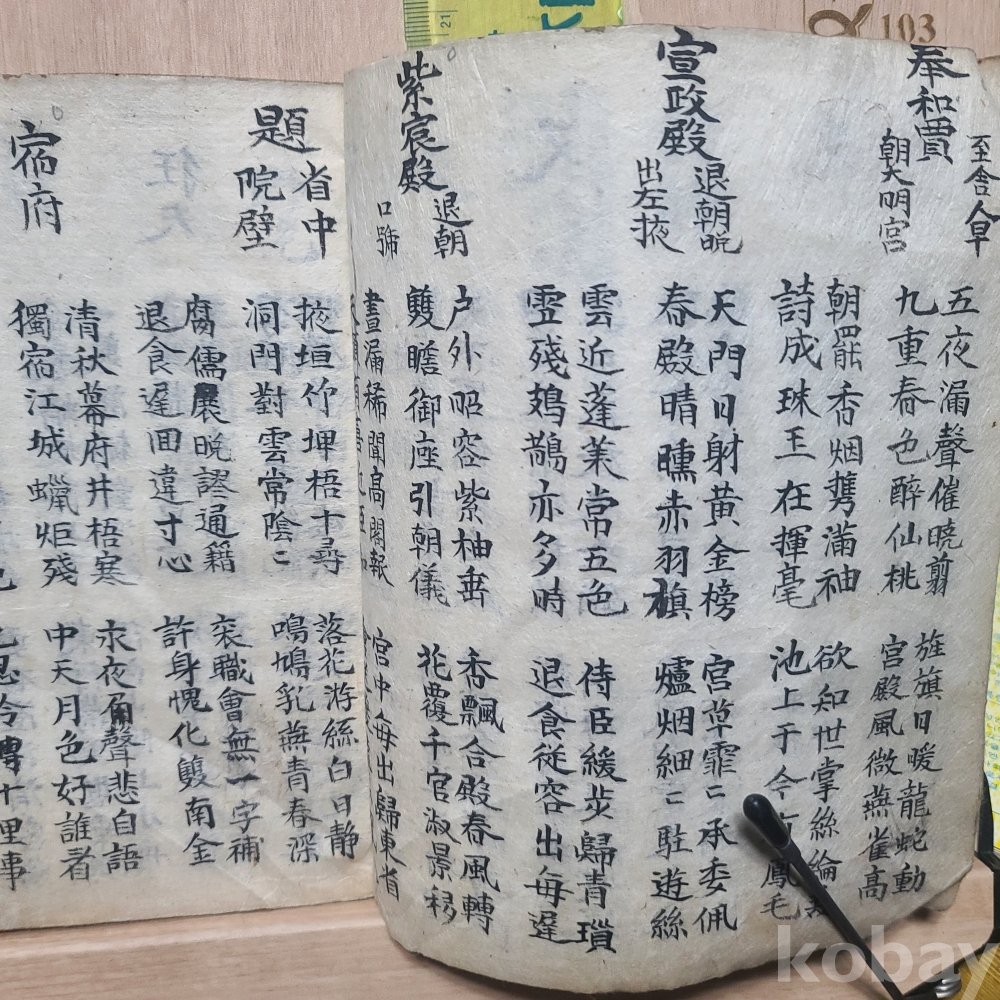 103
21
奉和賈
至舍人早
朝大明宮
五夜漏聲催曉翦
九重春色醉仙桃
旌旗日暖龍蛇動
宮殿風微燕雀高
朝罷香烟携滿袖
詩成珠玉在揮毫
欲知世掌絲綸
池上于今 鳳毛
宣政殿
退朝晩
出左掖
天門日射黃金榜
春殿晴曛赤羽旗
宮草霏〻承委佩
爐烟細〻駐遊絲
雲近蓬萊常五色
雪殘鳷鵲亦多時
侍臣緩步歸青瑣
退食從容出每遲
紫宸殿
退朝
口號
户外昭容紫袖垂
雙瞻御座引朝儀
香飄合殿春風轉
花覆千官淑景移
晝漏稀聞高閣報
宮中每出歸東省
題省中
院壁
掖垣竹埤梧十尋
洞門對雲常陰〻
落花游絲白日靜
鳴鳩乳燕青春深
腐儒晩謬通籍
退食遲回違寸心
袞職曾無一字補
許身愧化雙南金
宿府
清秋幕府井梧寒
獨宿江城蠟炬殘
永夜角聲悲自語
中天月色好誰看
kobay